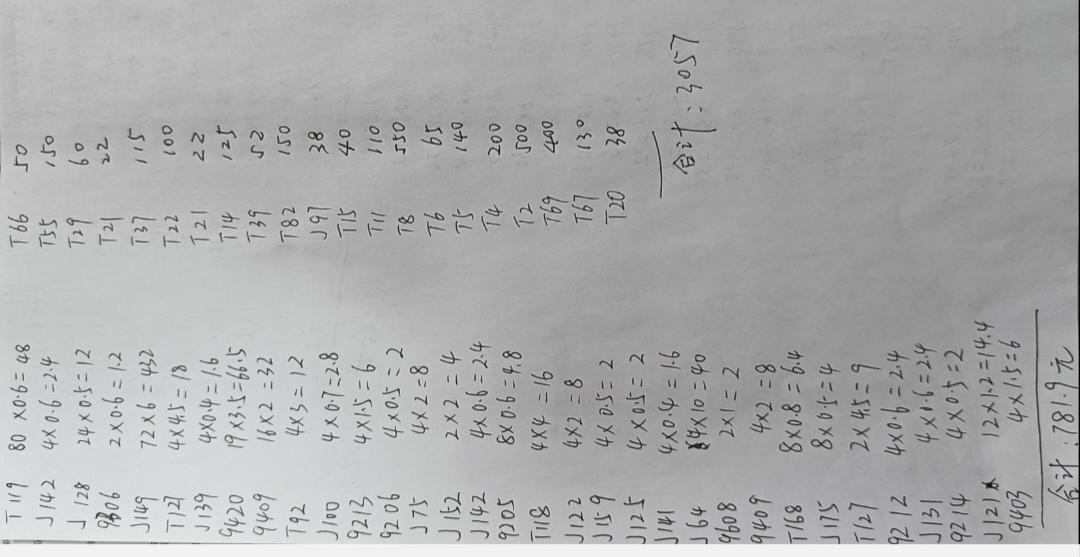 T119 80×0.6=48
J142 4×0.6=2.4
J128 24×0.5=12
2×0.6=1.2
J149 72×6=432
T127 4×4.5=18
J139 4×0.4=1.6
9420 19×3.5=66.5
9409 16×2=32
T92 4×3=12
J100 4×0.7=2.8
9213 4×1.5=6
9206 4×0.5=2
J75 4×2=8
J152 2×2=4
J142 4×0.6=2.4
9205 8×0.6=4.8
T118 4×4=16
J122 4×2=8
J159 4×0.5=2
J125 4×0.5=2
J141 4×0.4=1.6
J64 4×10=40
9608 2×1=2
9409 4×2=8
T168 8×0.8=6.4
J175 8×0.5=4
T127 2×4.5=9
9212 4×0.6=2.4
J131 4×0.6=2.4
9214 4×0.5=2
J121 12×1.2=14.4
9403 4×1.5=6
合计:781.9元
T66 50
T55 150
T29 60
T21 22
T37 115
T22 100
T21 22
T14 125
T39 52
T82 150
J97 38
T15 40
T11 110
T8 550
T6 65
T5 140
T4 200
T2 500
T69 400
T67 130
T20 38
合计:3057